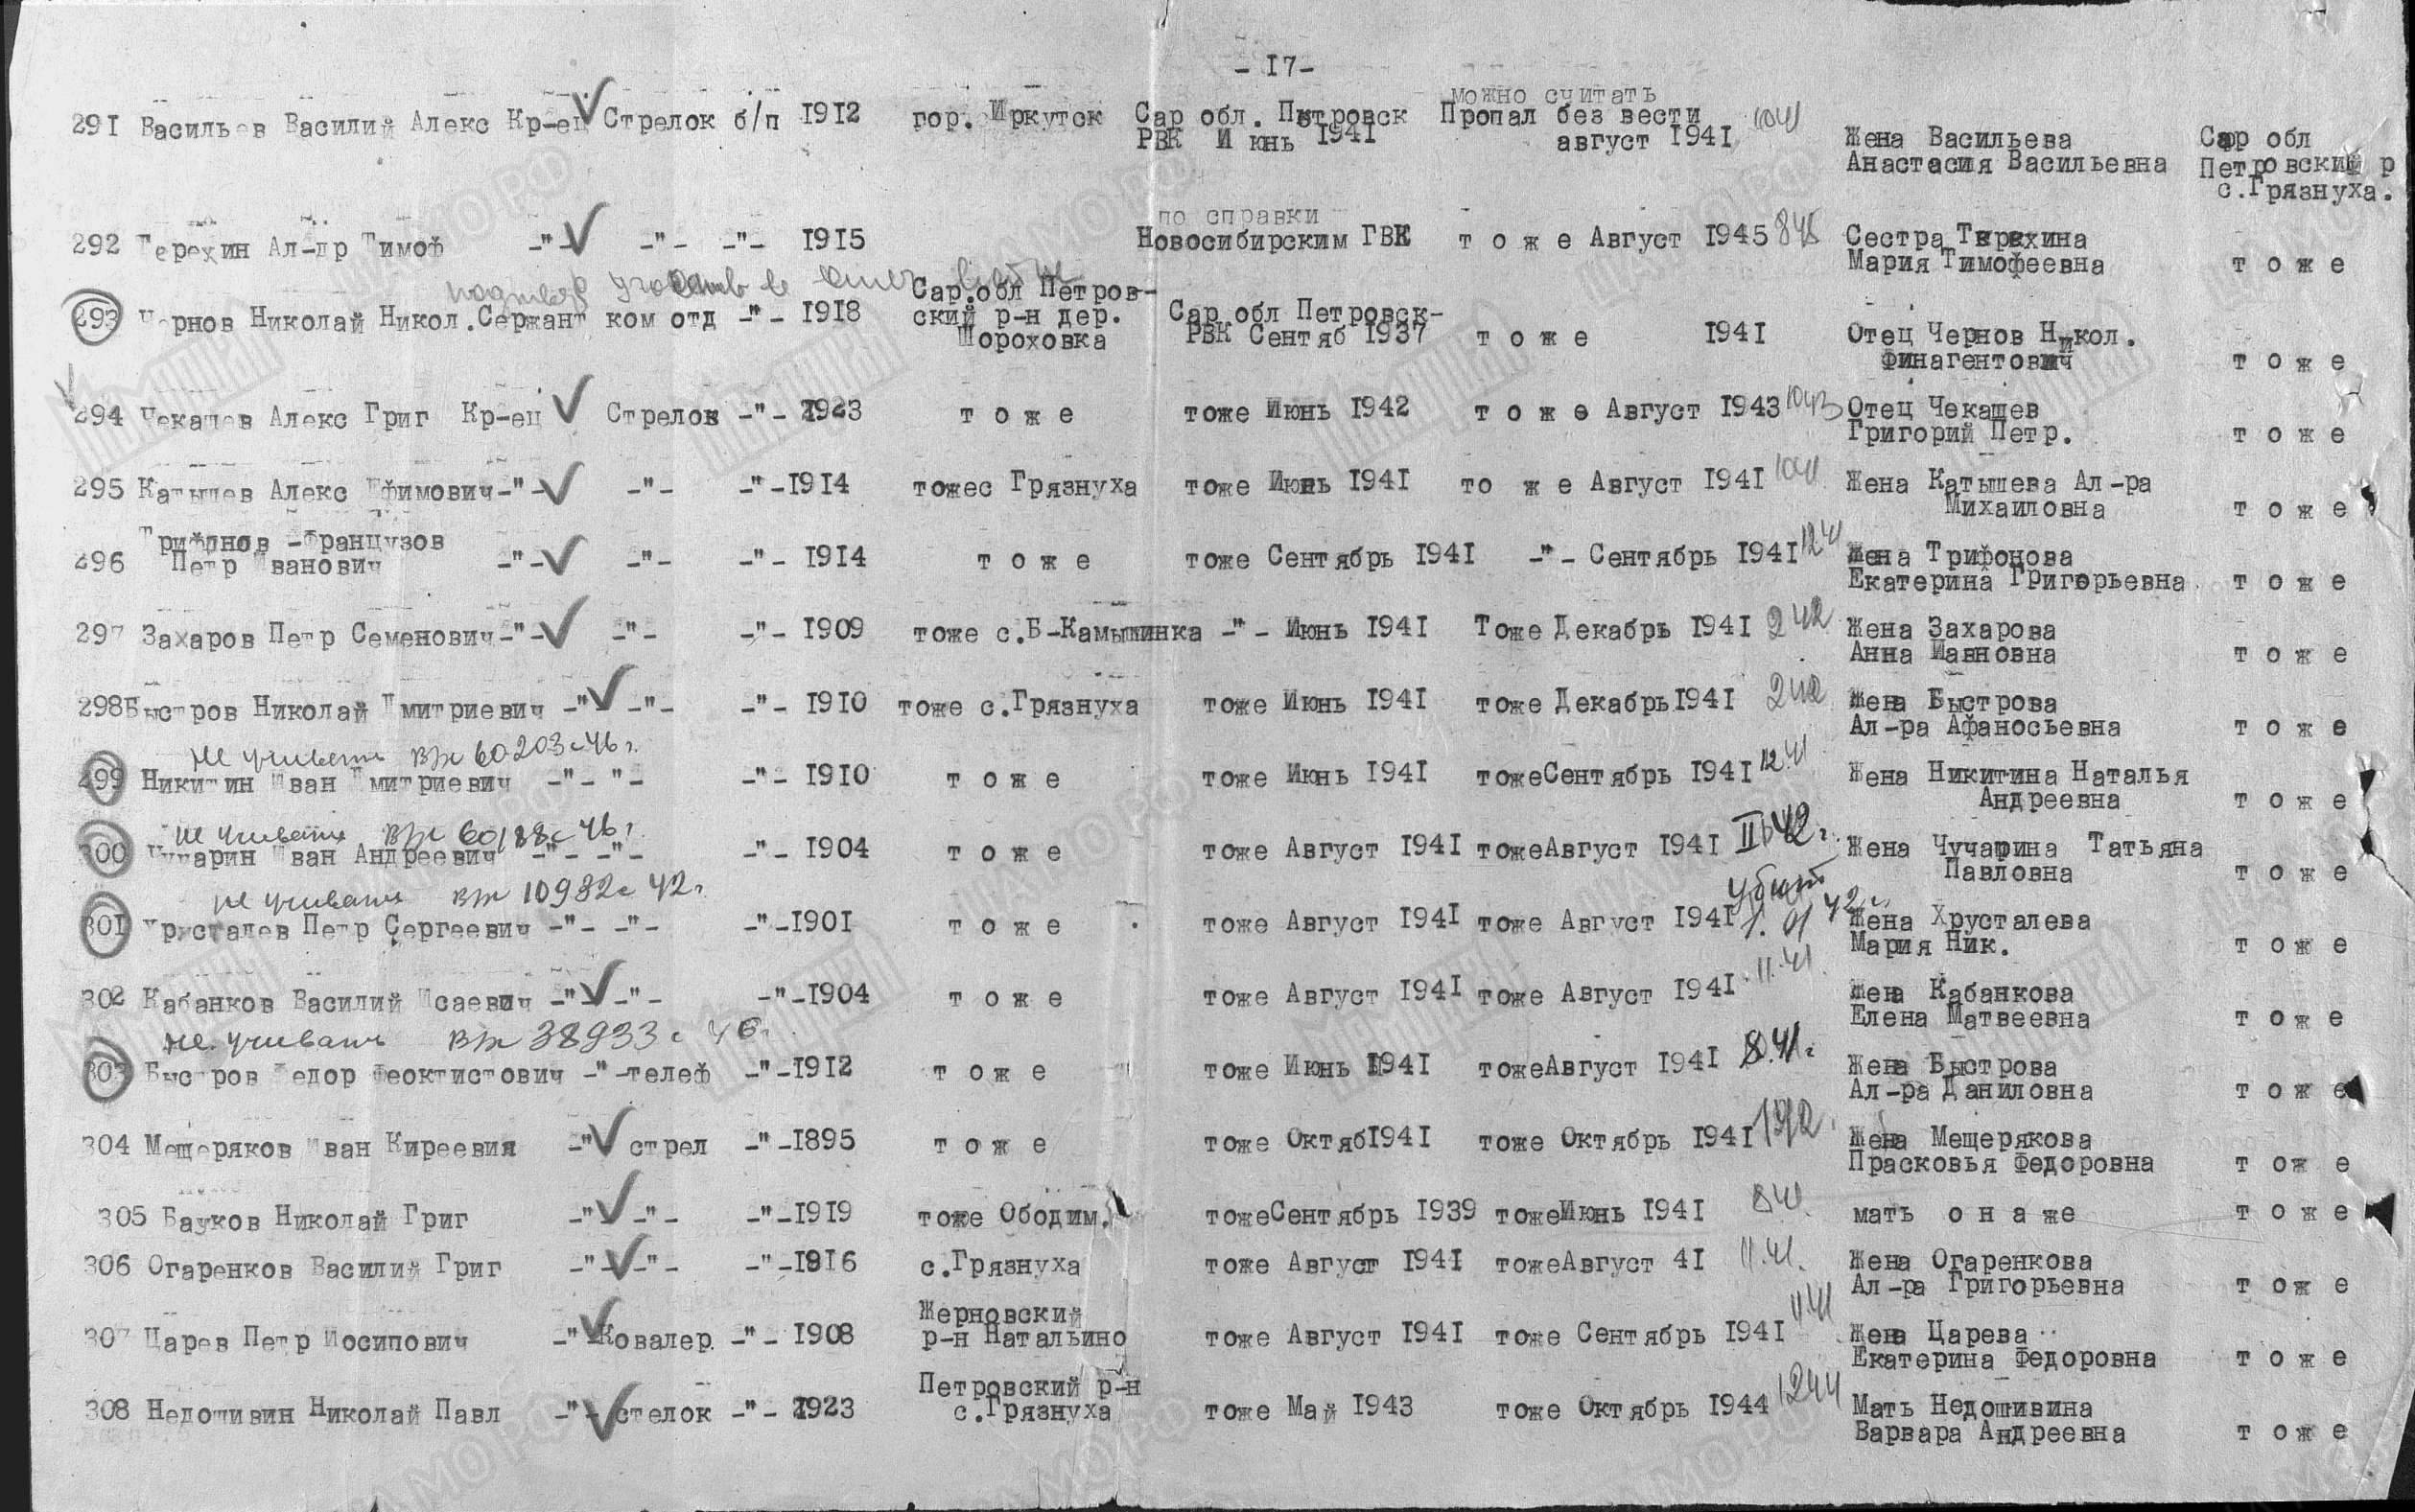 - 17-
можно считать
291 Васильев Василий Алекс Кр-ец Стрелок б/п 1912 гор. Иркутск Сар обл. Петровск Пропал без вести 1041
РВК И юнь 1941 август 1941 Жена Васильева Сар обл
Анастасия Васильевна Петровский р
с.Грязнуха.
по справки
292 Терехин Ал-др Тимоф -"- -"- -"- 1915 Новосибирским ГВК т о ж е Август 1945 845 Сестра Терехина
Мария Тимофеевна т о ж е
Сар.обл Петров-
293 Чернов Николай Никол.Сержант ком отд -"- 1918 ский р-н дер. Сар обл Петровск-
Шороховка РВК Сентяб 1937 т о ж е 1941 Отец Чернов Никол.
Финагентович т о ж е
294 Чекашев Алекс Григ Кр-ец Стрелок -"- 1923 т о ж е тоже Июнь 1942 т о ж е Август 1943 1043 Отец Чекашев
Григорий Петр. т о ж е
295 Катышев Алекс Ифимович -"- -"- -"- 1914 тожес Грязнуха тоже Июнь 1941 то ж е Август 1941 1041 Жена Катышева Ал-ра
Михаиловна т о ж е
Трифонов -Французов
296 Петр Иванович -"- -"- -"- 1914 т о ж е тоже Сентябрь 1941 -"- Сентябрь 1941 1241 Жена Трифонова
Екатерина Григорьевна т о ж е
297 Захаров Петр Семенович -"- -"- -"- 1909 тоже с.Б-Камышинка -"- Июнь 1941 Тоже Декабрь 1941 242 Жена Захарова
Анна Иавновна т о ж е
298Быстров Николай Дмитриевич -"- -"- -"- 1910 тоже с.Грязнуха тоже Июнь 1941 тоже Декабрь1941 242 Жена Быстрова
Ал-ра Афаносьевна т о ж е
не учитывать вх 60203с-46 г.
299 Никитин Иван Дмитриевич -"- "- -"- 1910 т о ж е тоже Июнь 1941 тожеСентябрь 1941 12.41 Жена Никитина Наталья
Андреевна т о ж е
не учитывать вх 60188с-46 г.
300 Чучарин Иван Андреевич -"- -"- -"- 1904 т о ж е тоже Август 1941 тожеАвгуст 1941 II 42г. Жена Чучарина Татьяна
Павловна т о ж е
не учитывать вх 10982с 42 г. убит
301 Хрусталев Петр Сергеевич -"- -"- -"-1901 т о ж е тоже Август 1941 тоже Август 1941 1.01 42г. Жена Хрусталева
Мария Ник. т о ж е
302 Кабанков Василий Исаевич -"- -"- -"-1904 т о ж е тоже Август 1941 тоже Август 1941 11.41 Жена Кабанкова
Елена Матвеевна т о ж е
не учитывать вх 38933с 46г.
303 Быстров Федор Феоктистович -"-телеф -"-1912 т о ж е тоже Июнь 1941 тожеАвгуст 1941 8.41г Жена Быстрова
Ал-ра Даниловна т о ж е
304 Мещеряков Иван Киреевия -"- стрел -"-1895 т о ж е тоже Октяб1941 тоже Октябрь 1941 Жена Мещерякова
Прасковья Федоровна т о ж е
305 Бауков Николай Григ -"- -"- -"-1919 тоже Ободим. тожеСентябрь 1939 тожеИюнь 1941 841. мать о н а же т о ж е
306 Огаренков Василий Григ -"- -"- -"-1916 с.Грязнуха тоже Август 1941 тожеАвгуст 41 11.41. Жена Огаренкова
Ал-ра Григорьевна т о ж е
Жерновский 11.41
307 Царев Петр Иосипович -"-Ковалер -"- 1908 р-н Натальино тоже Август 1941 тоже Сентябрь 1941 Жена Царева
Екатерина Федоровна т о ж е
Петровский р-н
308 Недошивин Николай Павл -"- стелок -"- 1923 с.Грязнуха тоже Май 1943 тоже Октябрь 1944 1244 Мать Недошивина
Варвара Андреевна т о ж е